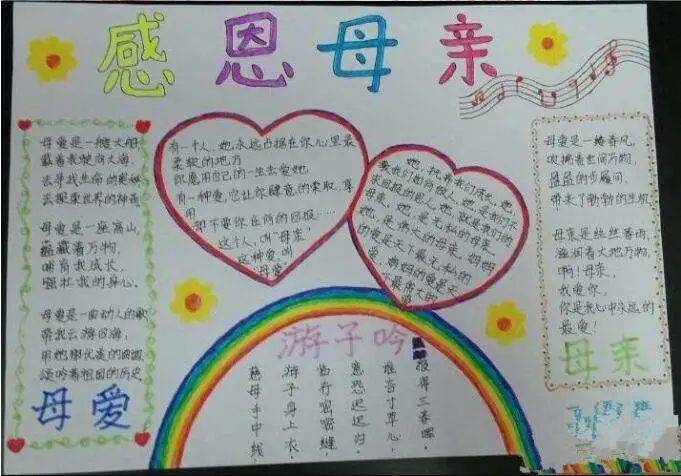 感恩母亲
母爱是一艘大船
载着我驶向大海,
去寻找生命的奥妙
去探索世界的神奇
母爱是一座高山
蕴藏着万物,
哺育我成长,
强壮我的身心。
母爱是一曲动人的歌
带我去游四海,
用她那优美的
颂吟着祖国的历史
母爱
有一个人,她永远占据在你心里最
柔软的地方
你愿用自己的一生去爱她
有一种爱,它让你肆意的索取、享
用
却不要你任何的回报……
这个人,叫“母亲”
这种爱,叫
“母爱”
她,抚养我们成长,她,
教我们如何做人,她,是我们不
求回报的恩人,她,就是我们的
母亲,她,是无私的母亲,
她,是伟大的母亲。妈妈
的爱是天下最无私的
爱,妈妈的爱是天
下最伟大的
母爱是一缕春风,
吹拂着世间万物,
盈盈的步履间,
带来了勃勃的生机
母亲是丝丝春雨,
滋润着大地万物,
啊!母亲,
我爱你,
你是我心中永远的
最爱!
母亲
游子吟
慈母手中线,
游子身上衣。
临行密密缝,
意恐迟迟归。
谁言寸草心,
报得三春晖。